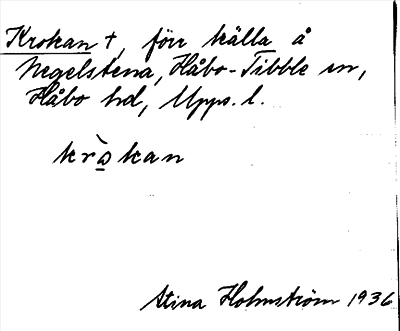 Krokan †, förr källa å
Negelstena, Håbo-Tibble sn,
Håbo hd, Upps. l.
krò̲kan
Stina Holmström 1936